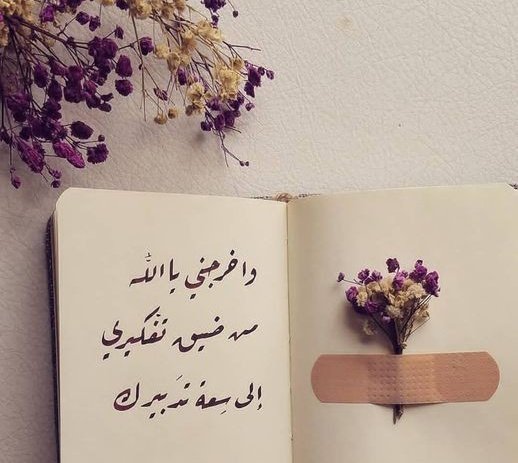 واخرجني ياالله
من ضيق تفكيري
إلى سِعة تدَبيرك